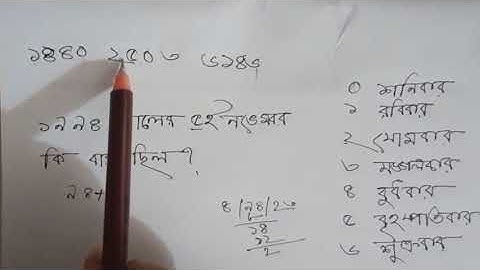 ১৪৪০ ২৫০৩ ৬১৪৬
১৯৯৪ সালের ৫ই নভেম্বর
কি বার ছিল?
৯৪+
৪ ৯৪ ২৩
১৪
১২
২
০ শনিবার
১ রবিবার
২ সোমবার
৩ মঙ্গলবার
৪ বুধবার
৫ বৃহস্পতিবার
৬ শুক্রবার